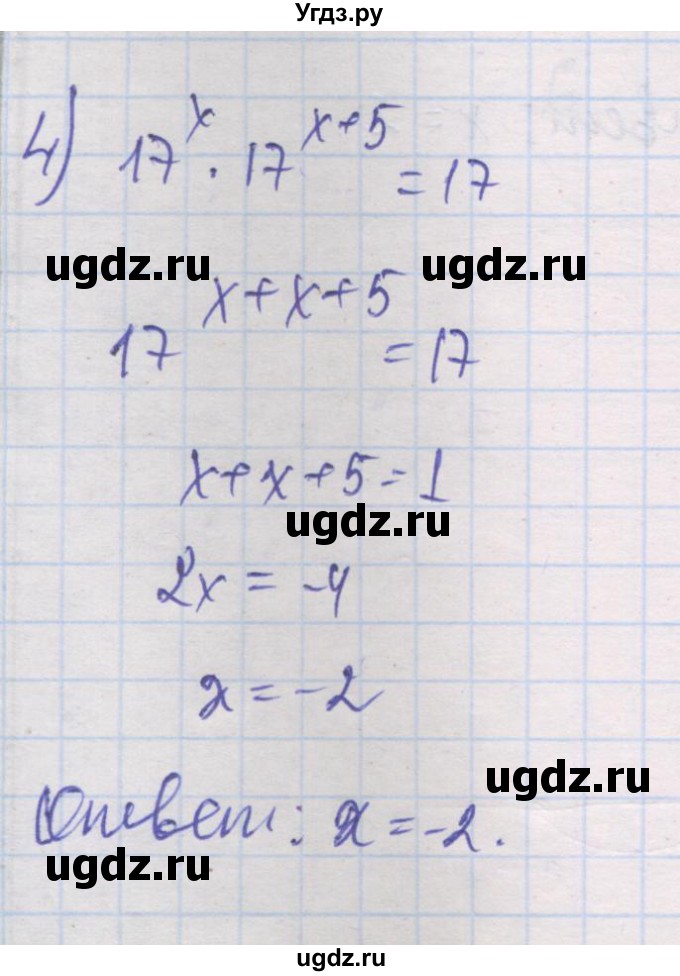 Угдз.ру
4) 17^x · 17^(x+5) = 17
ugdz.ru ugdz.ru
17^(x+x+5) = 17
x+x+5=1
ugdz.ru
2x = -4
x = -2
ugdz.ru
Ответ: x = -2.
ugdz.ru
ugdz.ru